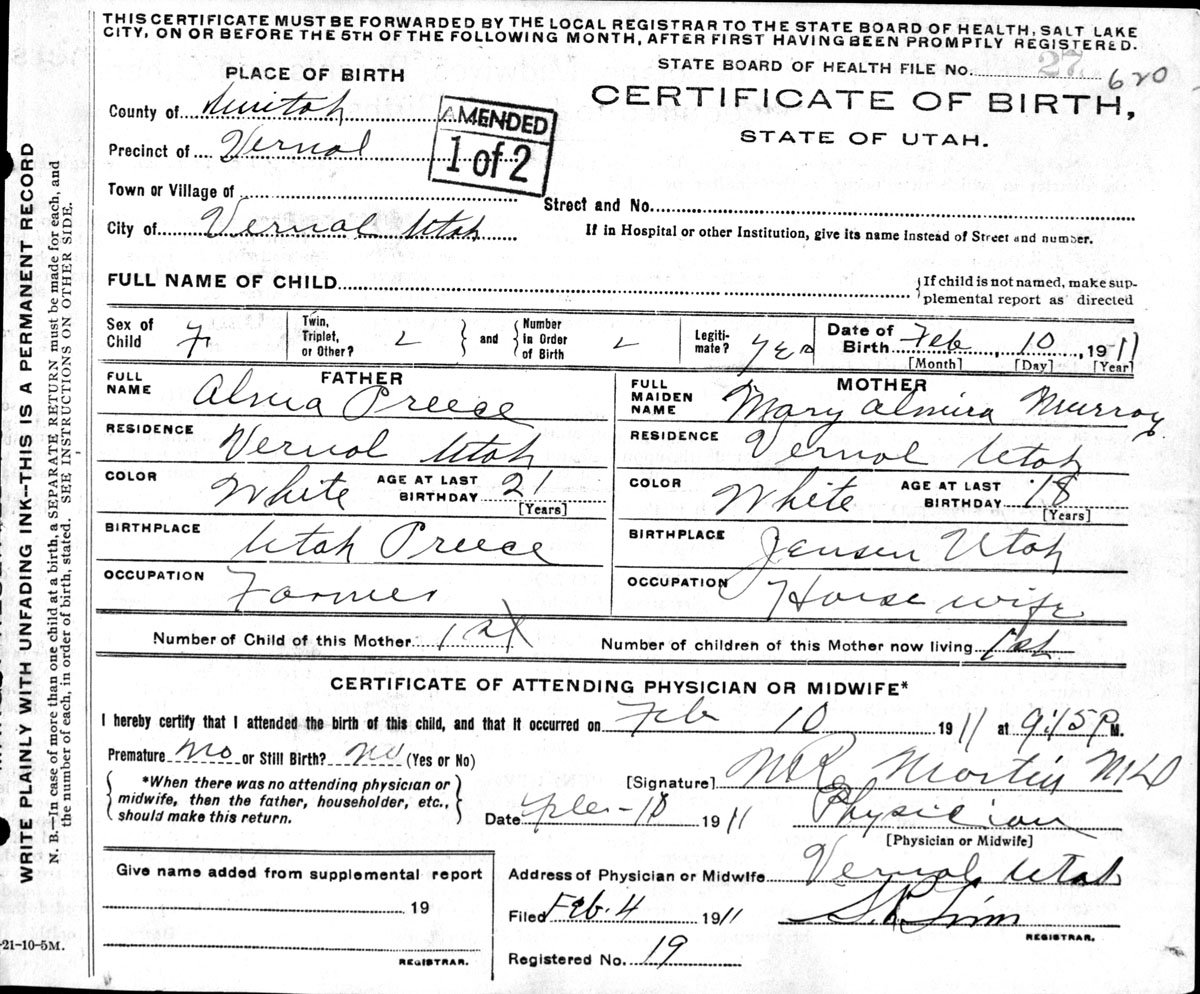 THIS CERTIFICATE MUST BE FORWARDED BY THE LOCAL REGISTRAR TO THE STATE BOARD OF HEALTH, SALT LAKE
CITY, ON OR BEFORE THE 5TH OF THE FOLLOWING MONTH, AFTER FIRST HAVING BEEN PROMPTLY REGISTERED.
STATE BOARD OF HEALTH FILE No. 27 620
PLACE OF BIRTH
CERTIFICATE OF BIRTH,
STATE OF UTAH.
County of
AMENDED
1 of 2
Precinct of Vernal
Town or Village of
Street and No.
City of Vernal Utah
If in Hospital or other Institution, give its name instead of Street and number.
FULL NAME OF CHILD
If child is not named, make sup-
plemental report as directed
Sex of Child F
Twin, Triplet, or Other?
and
Number in Order of Birth
Legiti-mate? Yes
Date of Birth Feb, 10, 1911
[Month] [Day] [Year]
FATHER
FULL NAME Alma Preece
RESIDENCE Vernal Utah
COLOR White AGE AT LAST BIRTHDAY 21
[Years]
BIRTHPLACE Utah Preece
OCCUPATION Farmer
MOTHER
FULL MAIDEN NAME Mary Almira Murray
RESIDENCE Vernal Utah
COLOR White AGE AT LAST BIRTHDAY 18
[Years]
BIRTHPLACE Jensen Utah
OCCUPATION House wife
Number of Child of this Mother 1st
Number of children of this Mother now living 1st
CERTIFICATE OF ATTENDING PHYSICIAN OR MIDWIFE*
I hereby certify that I attended the birth of this child, and that it occurred on Feb 10 1911 at 9:15 P M.
Premature No or Still Birth? No (Yes or No)
*When there was no attending physician or
midwife, then the father, householder, etc.,
should make this return.
[Signature]
Date 18 1911
Physician
[Physician or Midwife]
Address of Physician or Midwife Vernal Utah
Filed Feb. 4 1911
REGISTRAR.
Registered No. 19
Give name added from supplemental report
19
REGISTRAR.
WRITE PLAINLY WITH UNFADING INK--THIS IS A PERMANENT RECORD
N. B.—In case of more than one child at a birth, a SEPARATE RETURN must be made for each, and
the number of each, in order of birth, stated. SEE INSTRUCTIONS ON OTHER SIDE.
-21-10-5M.